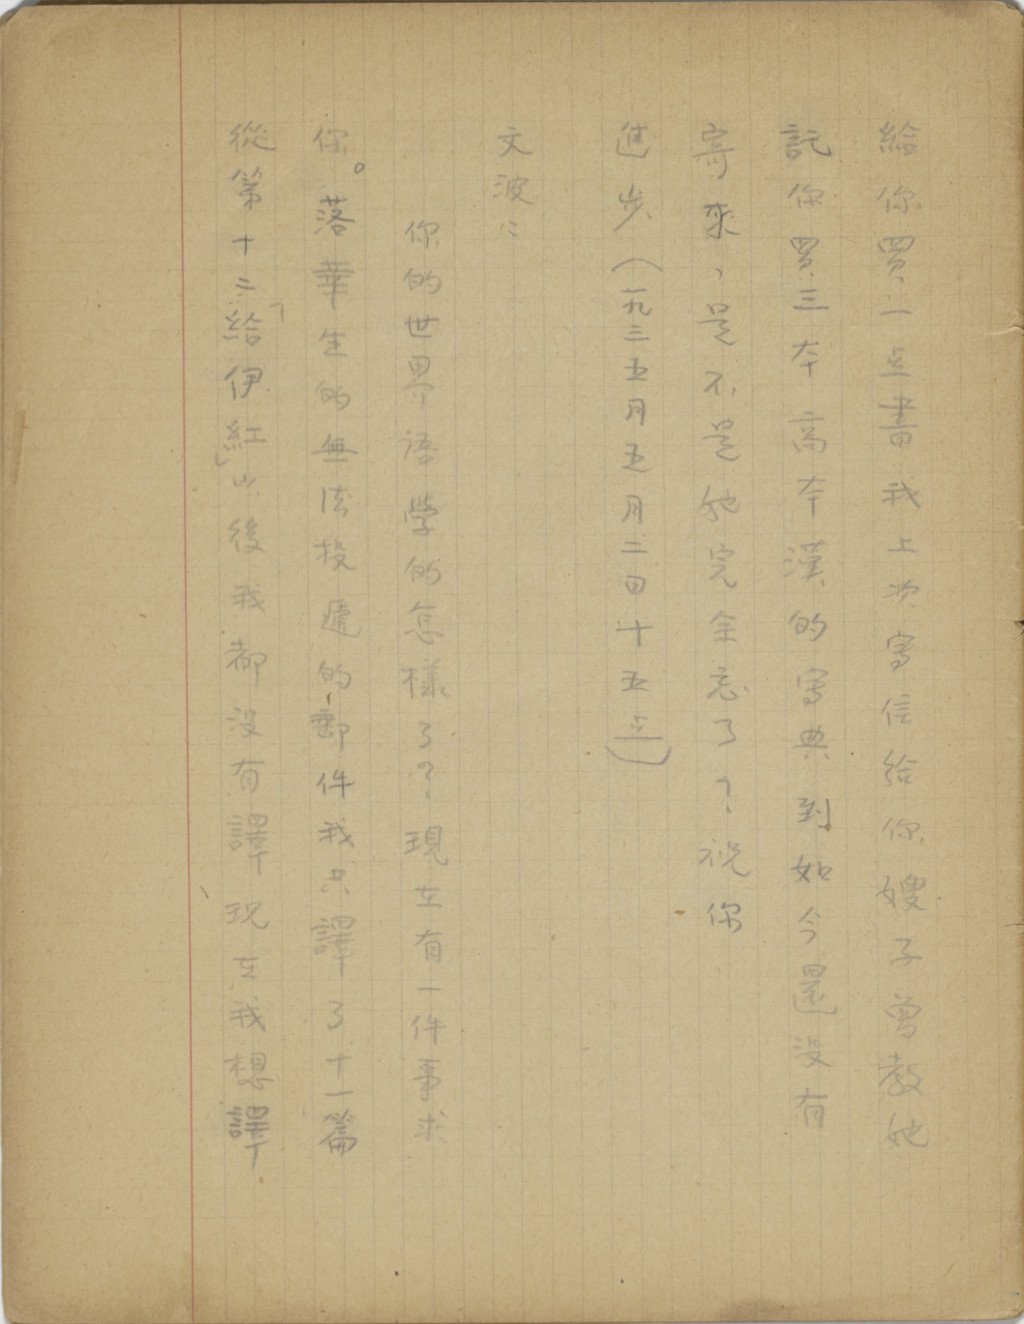 給你買一点書我上次寫信給你嫂子曾教她
託你買三本高本漢的字典到如今還沒有
寄來、是不是她完全忘了？祝你
進步（一九三五月五月二日十五点）
文波：
你的世界語學的怎樣了？現在有一件事求
你。落華生的無法投遞的郵件我共譯了十一篇
從第十二「給伊紅」以後我都沒有譯現在我想譯